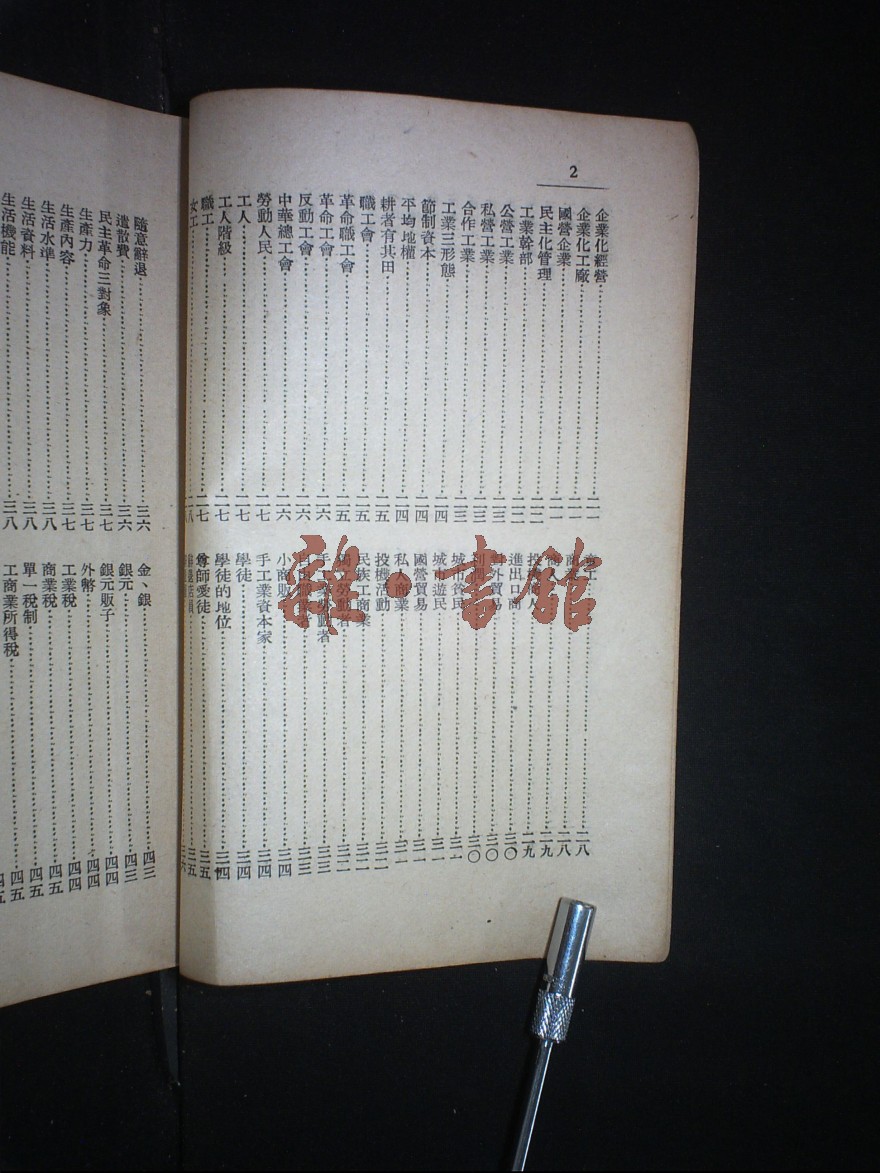 2
企業化經營……二一
企業化工廠……二一
國營企業……二一
民主化管理……二二
工業幹部……二二
公營工業……二三
私營工業……二三
合作工業……二三
工業三形態……二四
節制資本……二四
平均地權……二四
耕者有其田……二五
職工會……二五
革命職工會……二五
革命工會……二六
反動工會……二六
中華總工會……二六
勞動人民……二七
工人……二七
工人階級……二七
職工……二七
女工……二八
二八
二八
二九
投機商人……二九
進出口商……三〇
對外貿易……三〇
三〇
城市貧民……三一
城市遊民……三一
國營貿易……三一
私人商業……三一
投機活動……三二
民族工商業……三二
獨立勞動者……三二
手工業勞動者……三三
自由職業者……三三
小商販……三四
手工業資本家……三四
學徒……三四
學徒的地位……三四
尊師愛徒……三五
雜·書館
隨意辭退……三六
遣散費……三六
民主革命三對象……三七
生產力……三七
生產內容……三七
生活水準……三八
生活資料……三八
生活機能……三八
金、銀……四三
銀元……四三
銀元販子……四四
外幣……四四
工業稅……四四
商業稅……四五
單一稅制……四五
工商業所得稅……四五